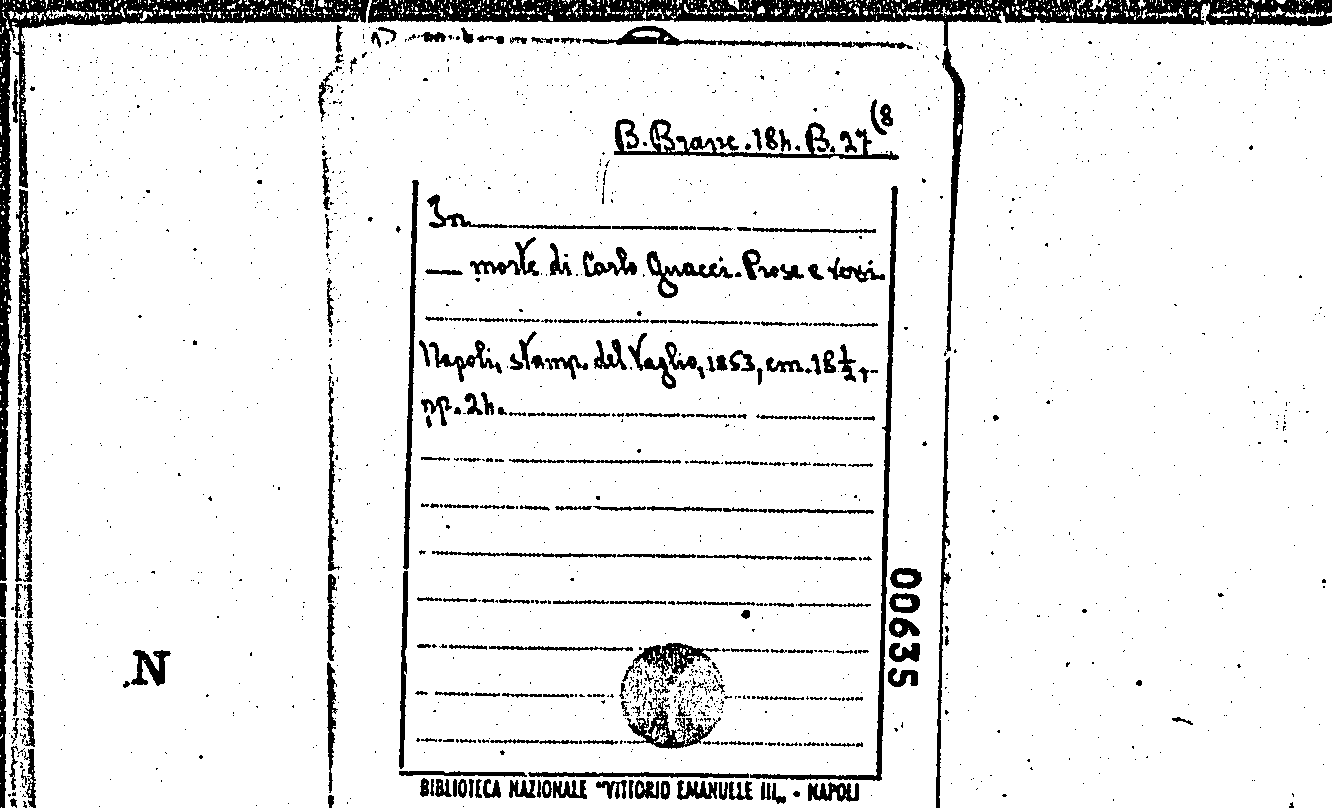 B. Branc. 18h. B. 27 (8
In
— morte di Carlo Guacci. Prose e versi.
Napoli, stamp. del Vaglio, 1853, cm. 18 1/2,
pp. 24.
00635
N
BIBLIOTECA NAZIONALE "VITTORIO EMANUELE III„ - NAPOLI